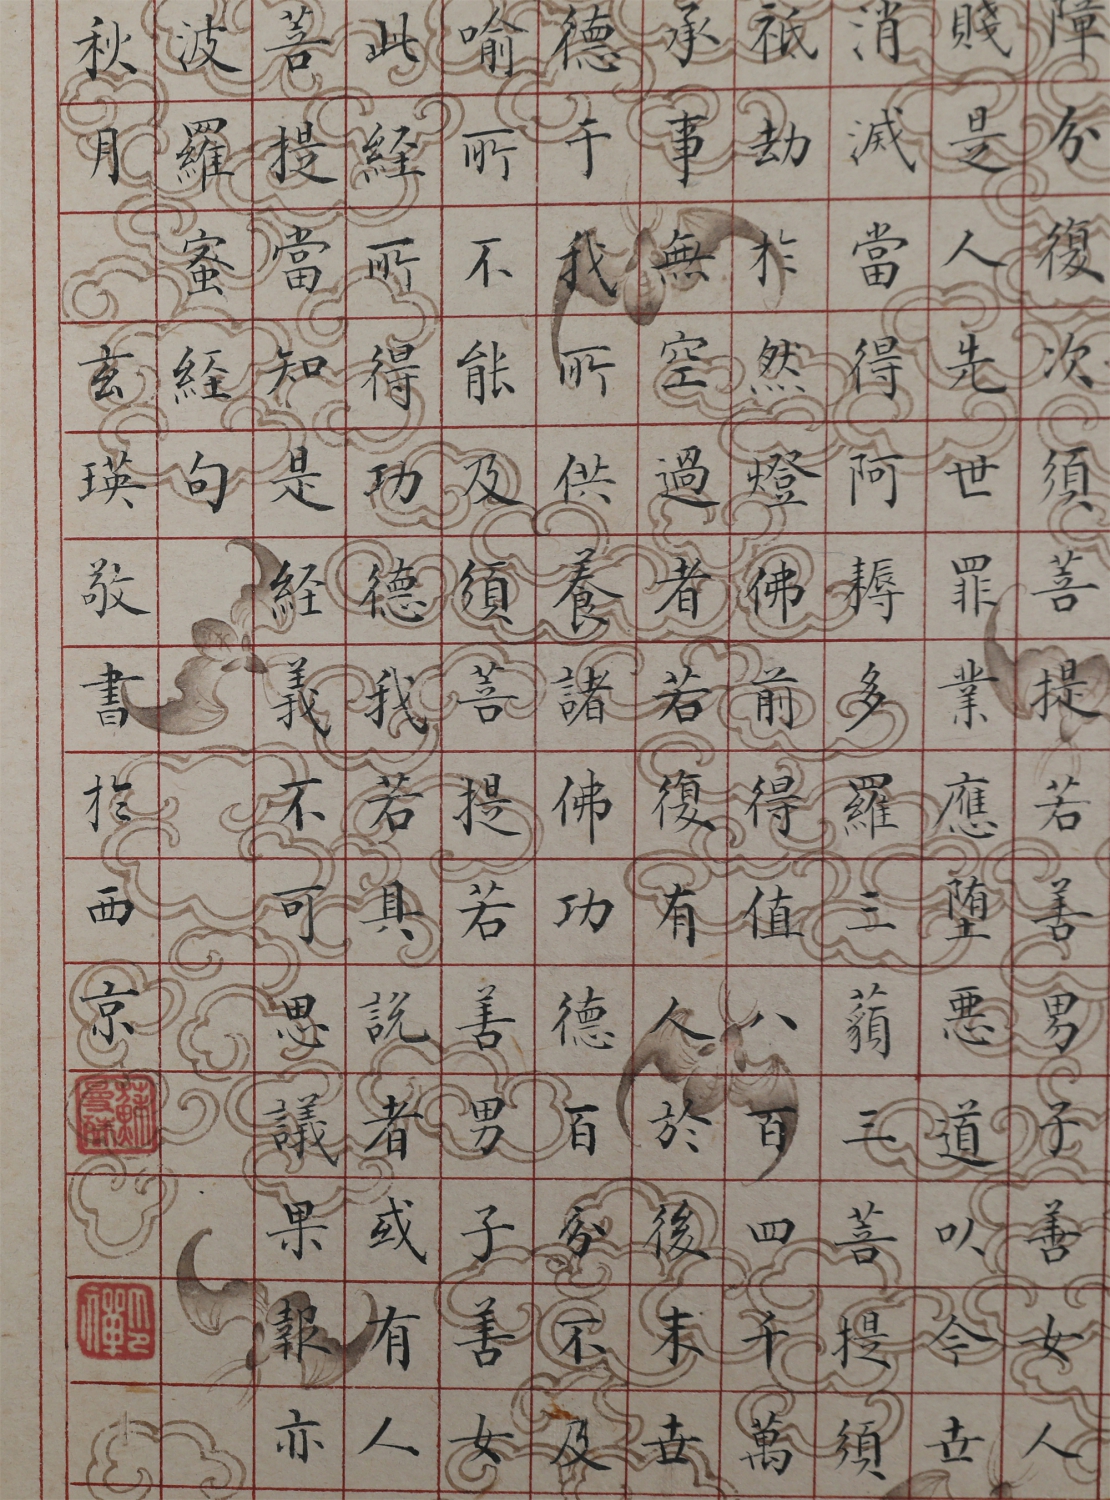 障分復次須菩提若善男子善女人
賤是人先世罪業應堕悪道以今世
消滅當得阿耨多羅三藐三菩提須
祇劫於然燈佛前得值八百四千萬
承事無空過者若復有人於後末世
德于我所供養諸佛功德百分不及
喻所不能及須菩提若善男子善女
此経所得功德我若具説者或有人
菩提當知是経義不可思議果報亦
波羅蜜経句
秋月 玄瑛敬書於西京
蘇曼殊